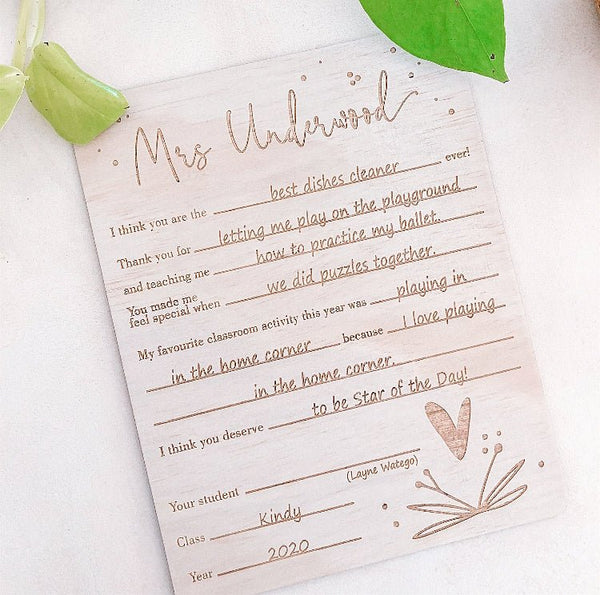 Mrs Underwood
I think you are the best dishes cleaner ever!
Thank you for letting me play on the playground
and teaching me how to practice my ballet.
You made me
feel special when we did puzzles together.
My favourite classroom activity this year was playing in
in the home corner because I love playing
in the home corner.
I think you deserve to be Star of the Day!
Your student
(Layne Watego)
Class Kindy
Year 2020